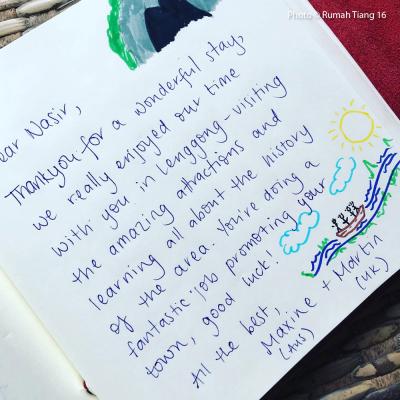 Photo © Rumah Tiang 16
ear Nasir,
Thankyou for a wonderful stay,
we really enjoyed our time
with you in Lenggong - visiting
the amazing attractions and
learning all about the history
of the area. You're doing a
fantastic job promoting your
town, good luck!
All the best,
Maxine + Martin
(Aus) (UK)